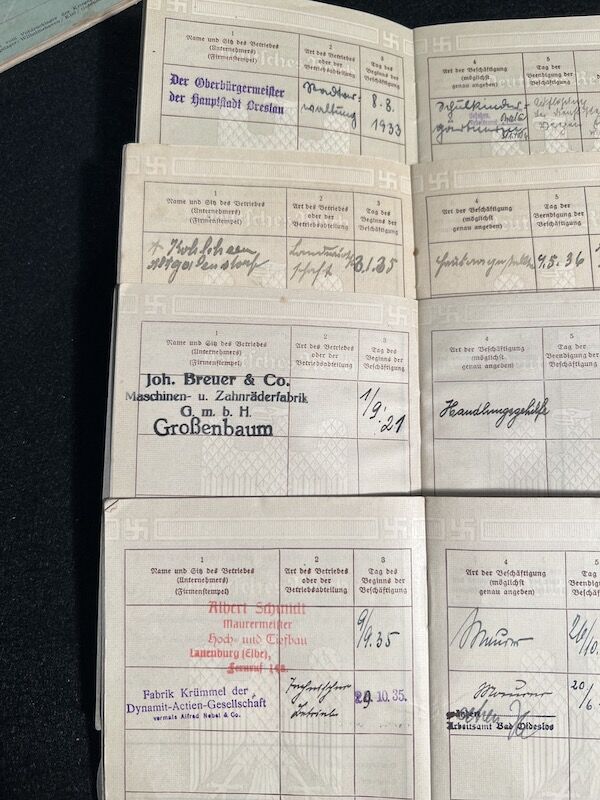 1
Name und Sitz des Betriebes
(Unternehmers)
(Firmenstempel)
2
Art des Betriebes
oder der
Betriebsabteilung
3
Tag des
Beginns der
Beschäftigung
4
Art der Beschäftigung
(möglichst
genau angeben)
5
Tag der
Beendigung der
Der Oberbürgermeister
der Hauptstadt Breslau
Stadtver-
waltung
8.8.
1933
1
Name und Sitz des Betriebes
(Unternehmers)
(Firmenstempel)
2
Art des Betriebes
oder der
Betriebsabteilung
3
Tag des
Beginns der
Beschäftigung
4
Art der Beschäftigung
(möglichst
genau angeben)
5
Tag der
Beendigung der
Beschäftigung
Landwirt-
schaft
3.1.35
Hausangestellte
9.5.36
1
Name und Sitz des Betriebes
(Unternehmers)
(Firmenstempel)
2
Art des Betriebes
oder der
Betriebsabteilung
3
Tag des
Beginns der
Beschäftigung
4
Art der Beschäftigung
(möglichst
genau angeben)
5
Tag der
Beendigung der
Beschäftigung
Joh. Breuer & Co.
Maschinen- u. Zahnräderfabrik
G. m. b. H.
Großenbaum
1/9. 21
Handlungsgehilfe
1
Name und Sitz des Betriebes
(Unternehmers)
(Firmenstempel)
2
Art des Betriebes
oder der
Betriebsabteilung
3
Tag des
Beginns der
Beschäftigung
4
Art der Beschäftigung
(möglichst
genau angeben)
Albert Schmidt
Maurermeister
Hoch- und Tiefbau
Lauenburg (Elbe),
Fernruf
9/9.35
Maurer
26/10
Fabrik Krümmel der
Dynamit-Actien-Gesellschaft
vormals Alfred Nobel & Co.
Betrieb
10. 35.
Maurer
20/6
Arbeitsamt Bad Oldesloe